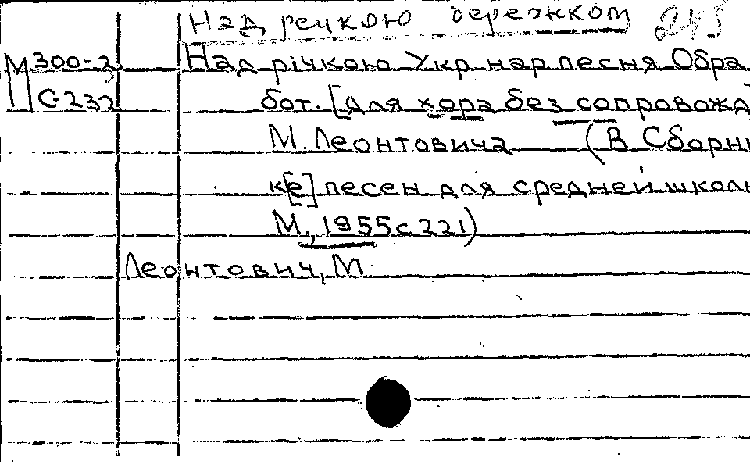 Над речкою бережком 243
М300-2 Над річкою Укр нар песня Обра
С232 бот. [для хора без сопровожд
М. Леонтовича (В Сборни
к[е] песен для средней школы
М., 1955 с 221)
Леонтович, М.